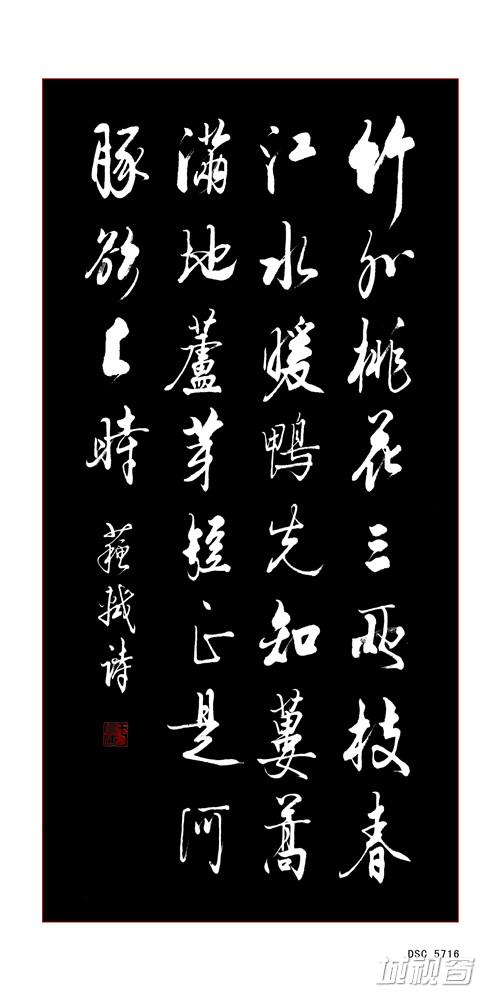 竹外桃花三兩枝春
江水暖鴨先知蔞蒿
滿地蘆芽短正是河
豚欲上時
蘇軾詩
DSC 5716
城视窗